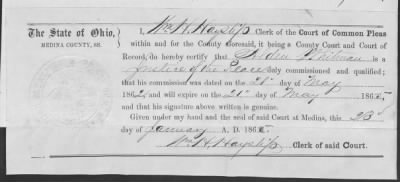 The State of Ohio,
MEDINA COUNTY, SS.
I, Wm H. Hayslip Clerk of the Court of Common Pleas
within and for the County aforesaid, it being a County Court and Court of
Record, do hereby certify that Whitman is a
Justice of the Peace duly commissioned and qualified;
that his commission was dated on the day of May
186 and will expire on the day of May 186
and that his signature above written is genuine.
Given under my hand and the seal of said Court at Medina, this 23d
day of January A. D. 186
Wm H. Hayslip Clerk of said Court.